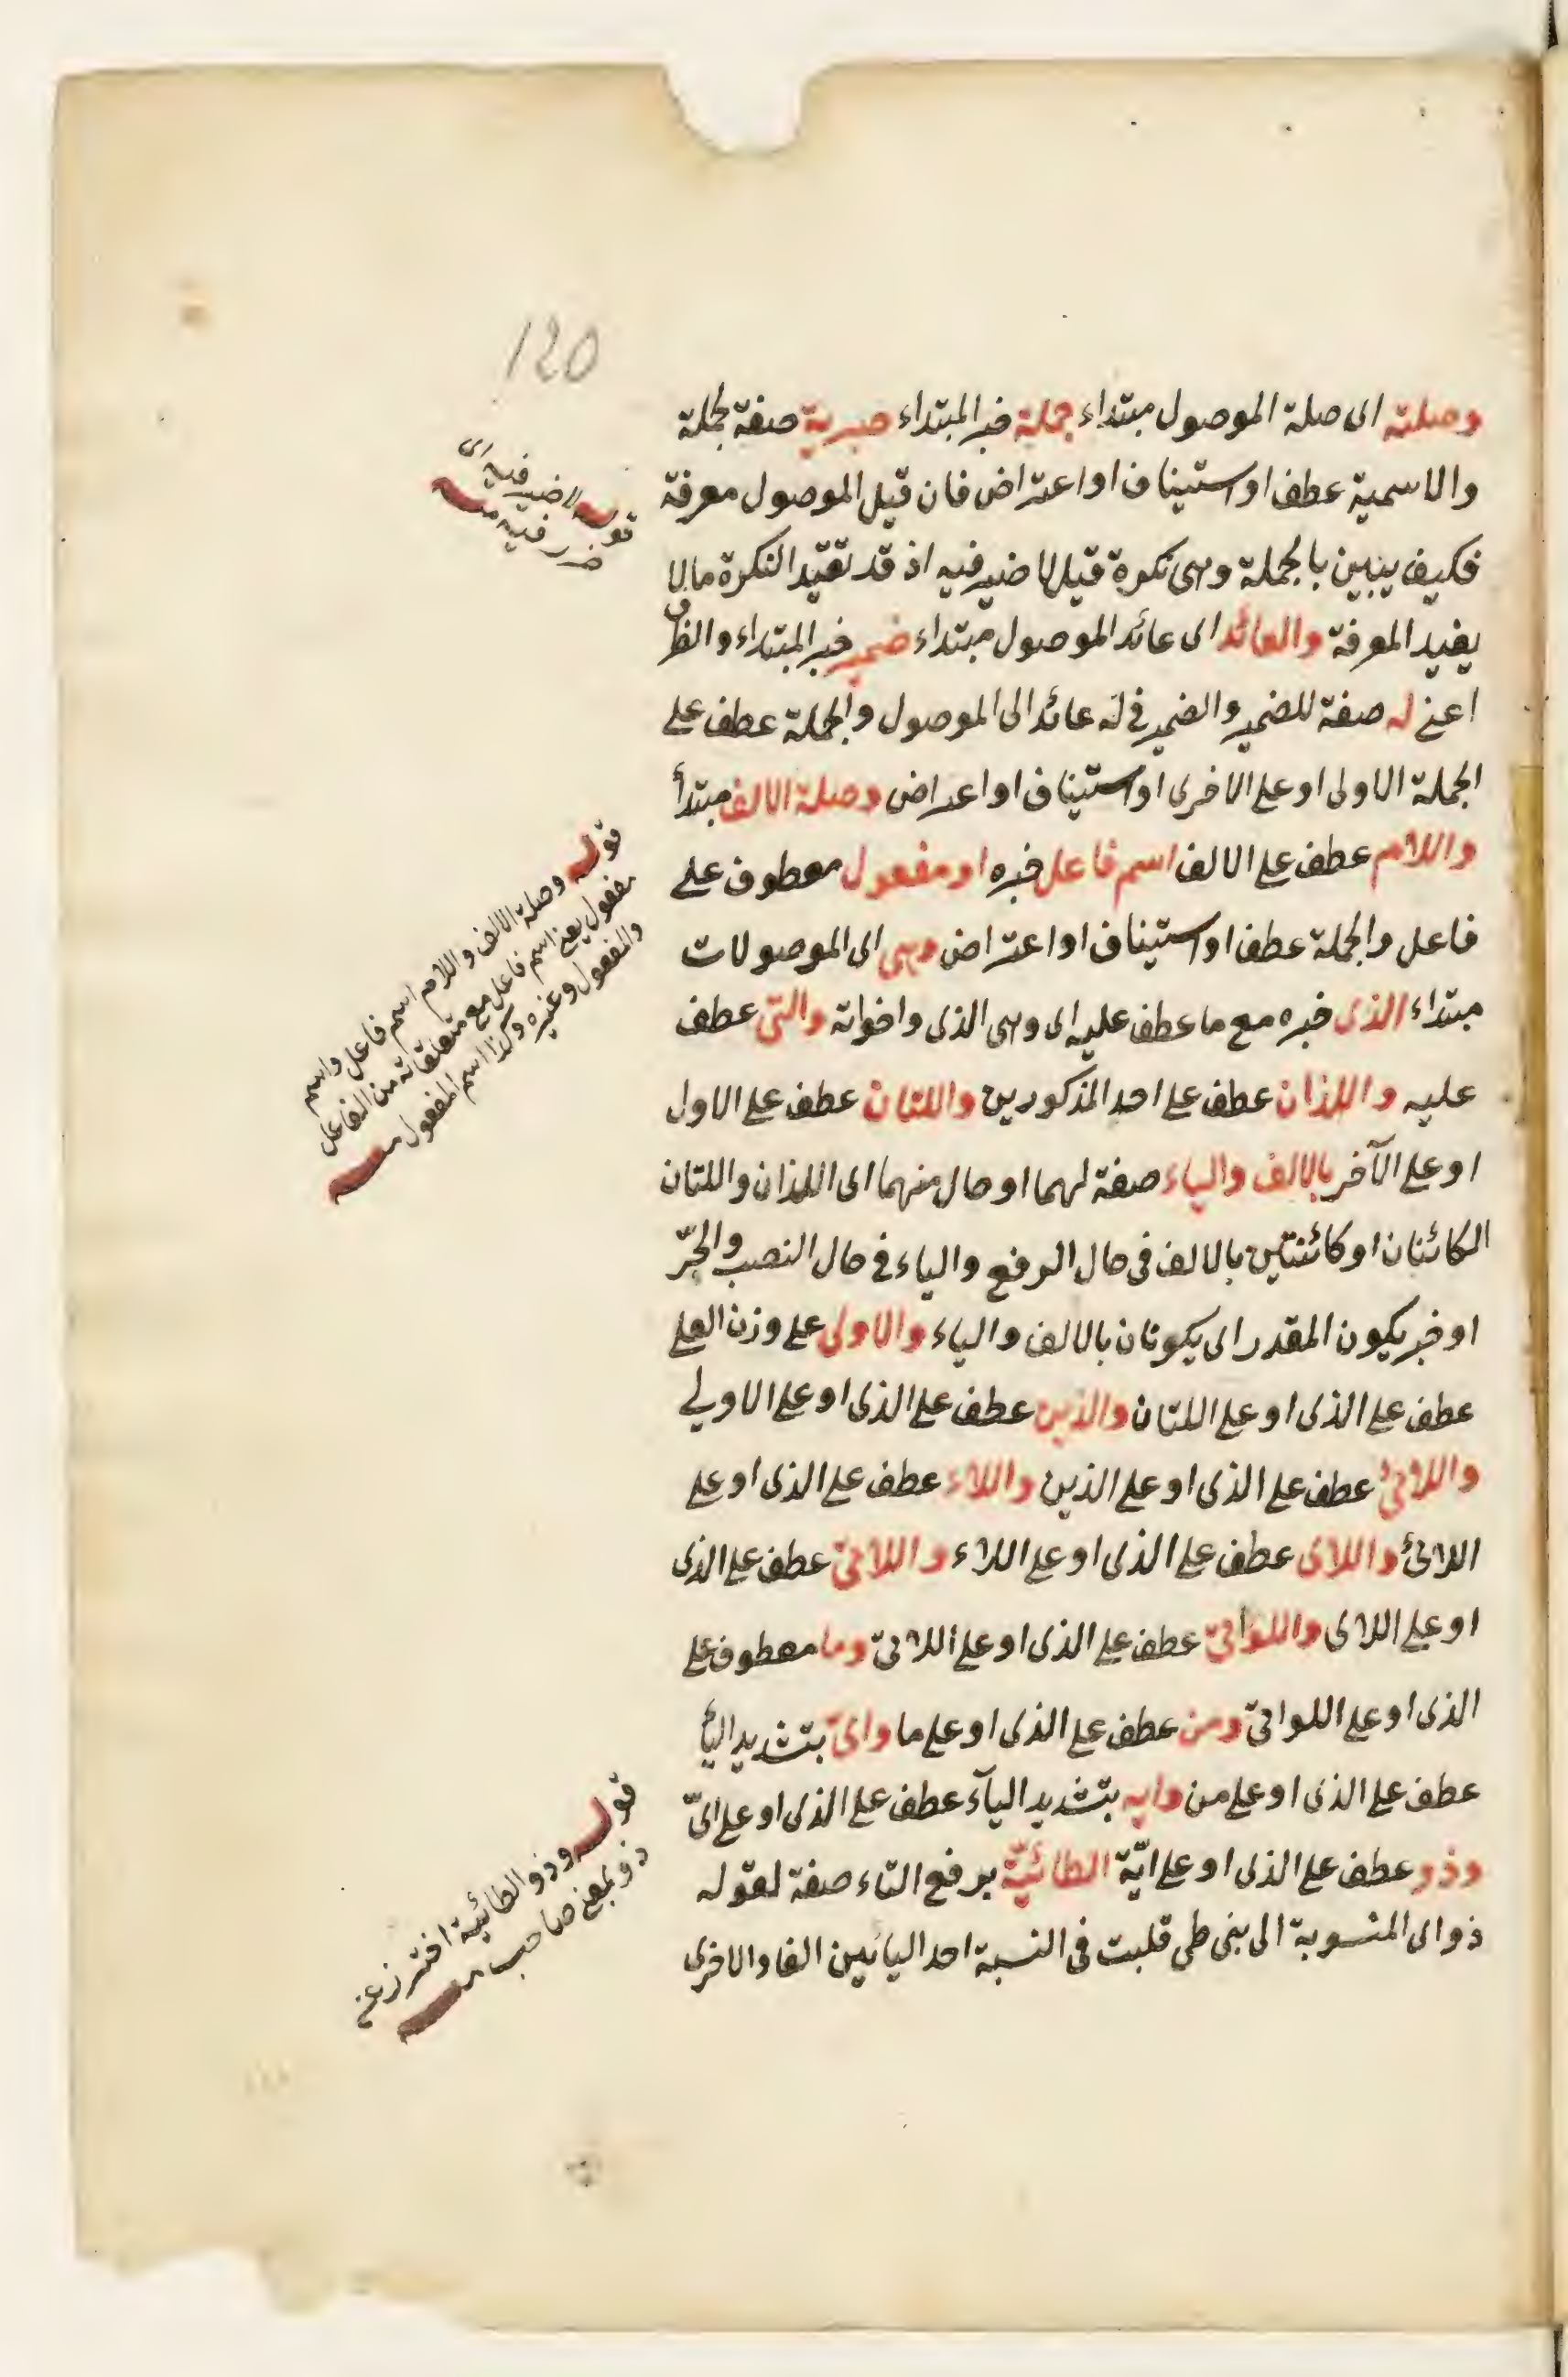 120
وصلته اى صلة الموصول مبتداء جملة خبر المبتداء خبرية صفة جملة
والاسمية عطف او استيناف او اعتراض فان قيل الموصول معرفة
فكيف يبين بالجملة وهى نكرة قيل لا ضير فيه اذ قد تقيد النكرة ما لا
يفيد المعرفة والعائد اى عائد الموصول مبتداء ضمير خبر المبتداء والظرف
اعنى له صفة للضمير والضمير فى له عائد الى الموصول والجملة عطف على
الجملة الاولى او على الاخرى او استيناف او اعتراض وصلة الالف مبتدأ
واللام عطف على الالف اسم فاعل خبره او مفعول معطوف على
فاعل والجملة عطف او استيناف او اعتراض وهى اى الموصولات
مبتداء الذى خبره مع ما عطف عليه اى وهى الذى واخواته والتى عطف
عليه واللذان عطف على احد المذكورين واللتان عطف على الاول
او على الآخر بالالف والياء صفة لهما او حال منهما اى اللذان واللتان
الكائنان او كائنتين بالالف فى حال الرفع والياء فى حال النصب والجرّ
او خبر يكون المقدر اى يكونان بالالف والياء والاولى على وزن العلى
عطف على الذى او على اللتان والذين عطف على الذى او على الاولى
واللائى عطف على الذى او على الذين واللاء عطف على الذى او على
اللائى واللاى عطف على الذى او على اللاء واللاتى عطف على الذى
او على اللاى واللواتى عطف على الذى او على اللاتى وما معطوف على
الذى او على اللواتى ومن عطف على الذى او على ما واىّ بتشديد اليأ
عطف على الذى او على من وايه بتشديد اليآء عطف على الذى او على اىّ
وذو عطف على الذى او على ايّة الطائيّة برفع التاء صفة لقوله
ذو اى المنسوبة الى بنى طى قلبت فى النسبة احد اليائين الفا والاخرى
قوله لا ضير فيه اى
ضرر فيه منه
قوله وصلة الالف واللام اسم فاعل واسم
مفعول يعنى اسم فاعل مع متعلقاته من الفاعل
والمفعول وغيره وكذا اسم المفعول منه
قوله وذو الطائية احترز عن
ذو بمعنى صاحب منه